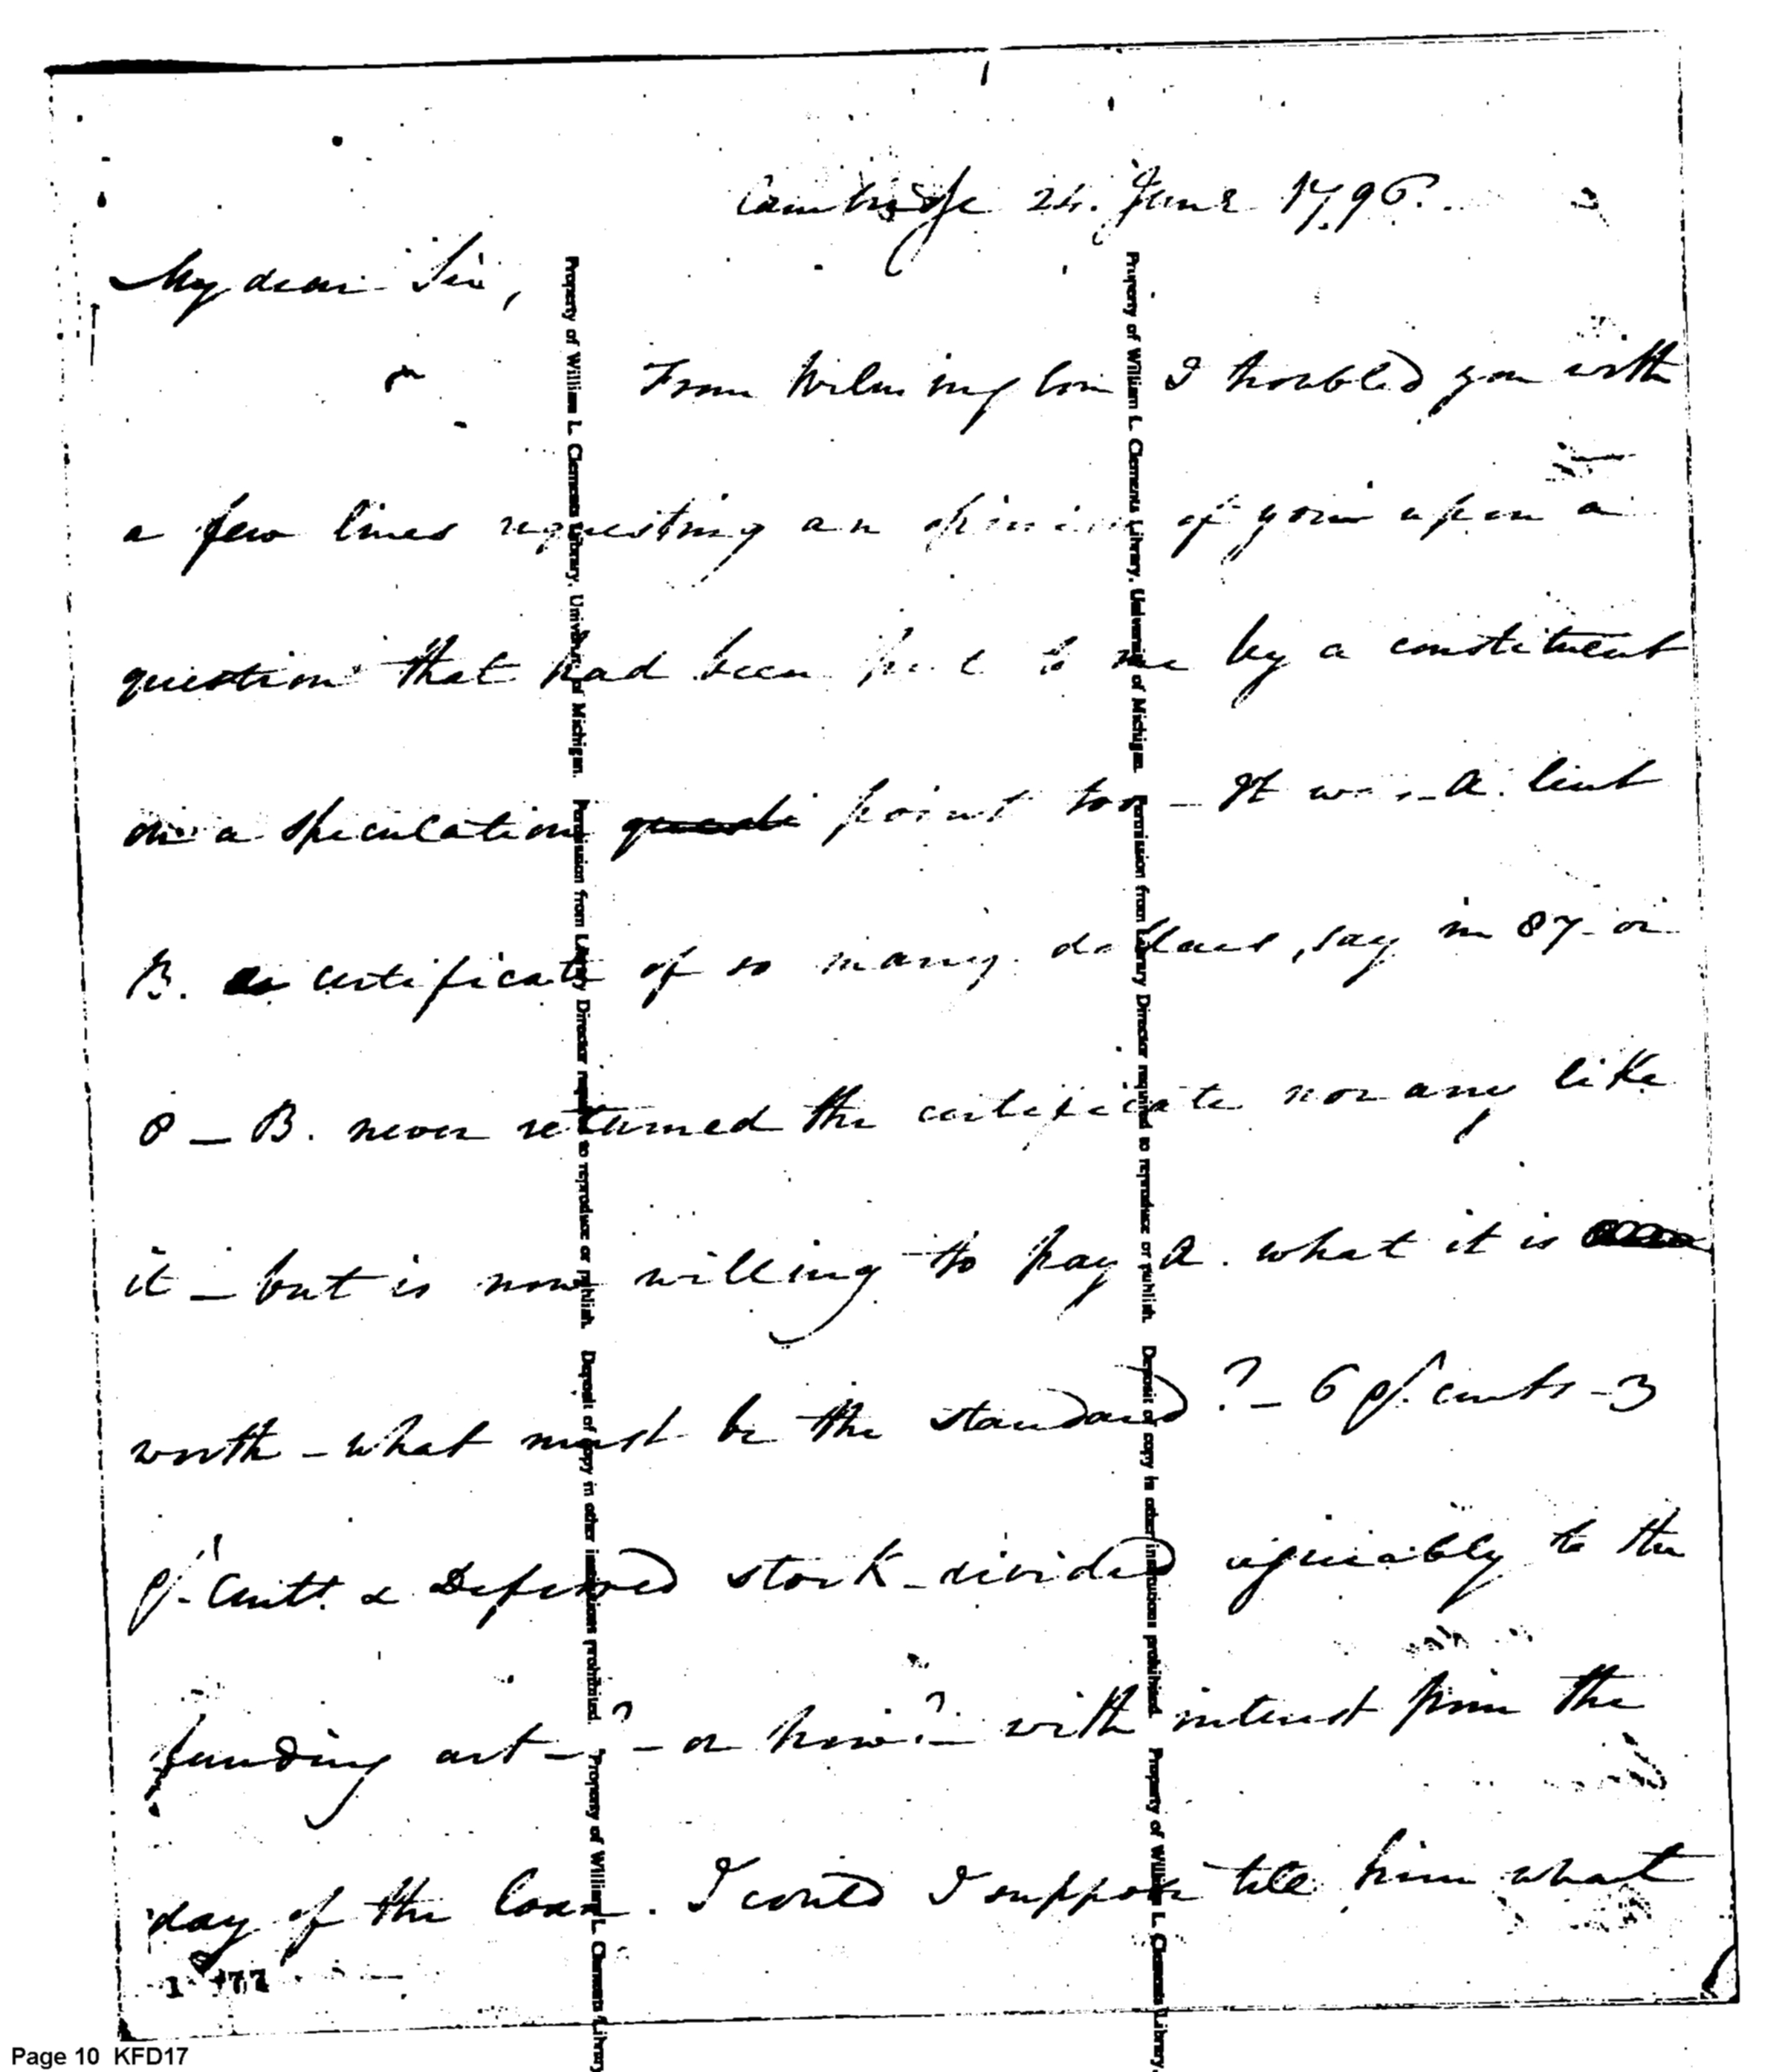 Cambridge 24. June 1796.
My dear Sir,
From Wilmington I troubled you with
a few lines requesting an opinion of your upon a
question that had been put to me by a constituent
on a speculation questi point too – It was – A. lent
B. a certificate of so many dollars, say in 87 or
8 – B. never returned the certificate nor any like
it – but is now willing to pay A. what it is
worth – what must be the standard? – 6 pr. cents – 3
pr. Cents. & Deferred stock – divided agreeably to the
funding act – ? – or how? – with interest from the
day of the loan. I could I suppose tell him what
Property of William L. Clements Library, University of Michigan. Permission from Library Director required to reproduce or publish. Deposit of copy in other institutions prohibited. Property of William L. Clements Library
Property of William L. Clements Library, University of Michigan. Permission from Library Director required to reproduce or publish. Deposit of copy in other institutions prohibited. Property of William L. Clements Library,
Page 10 KFD17